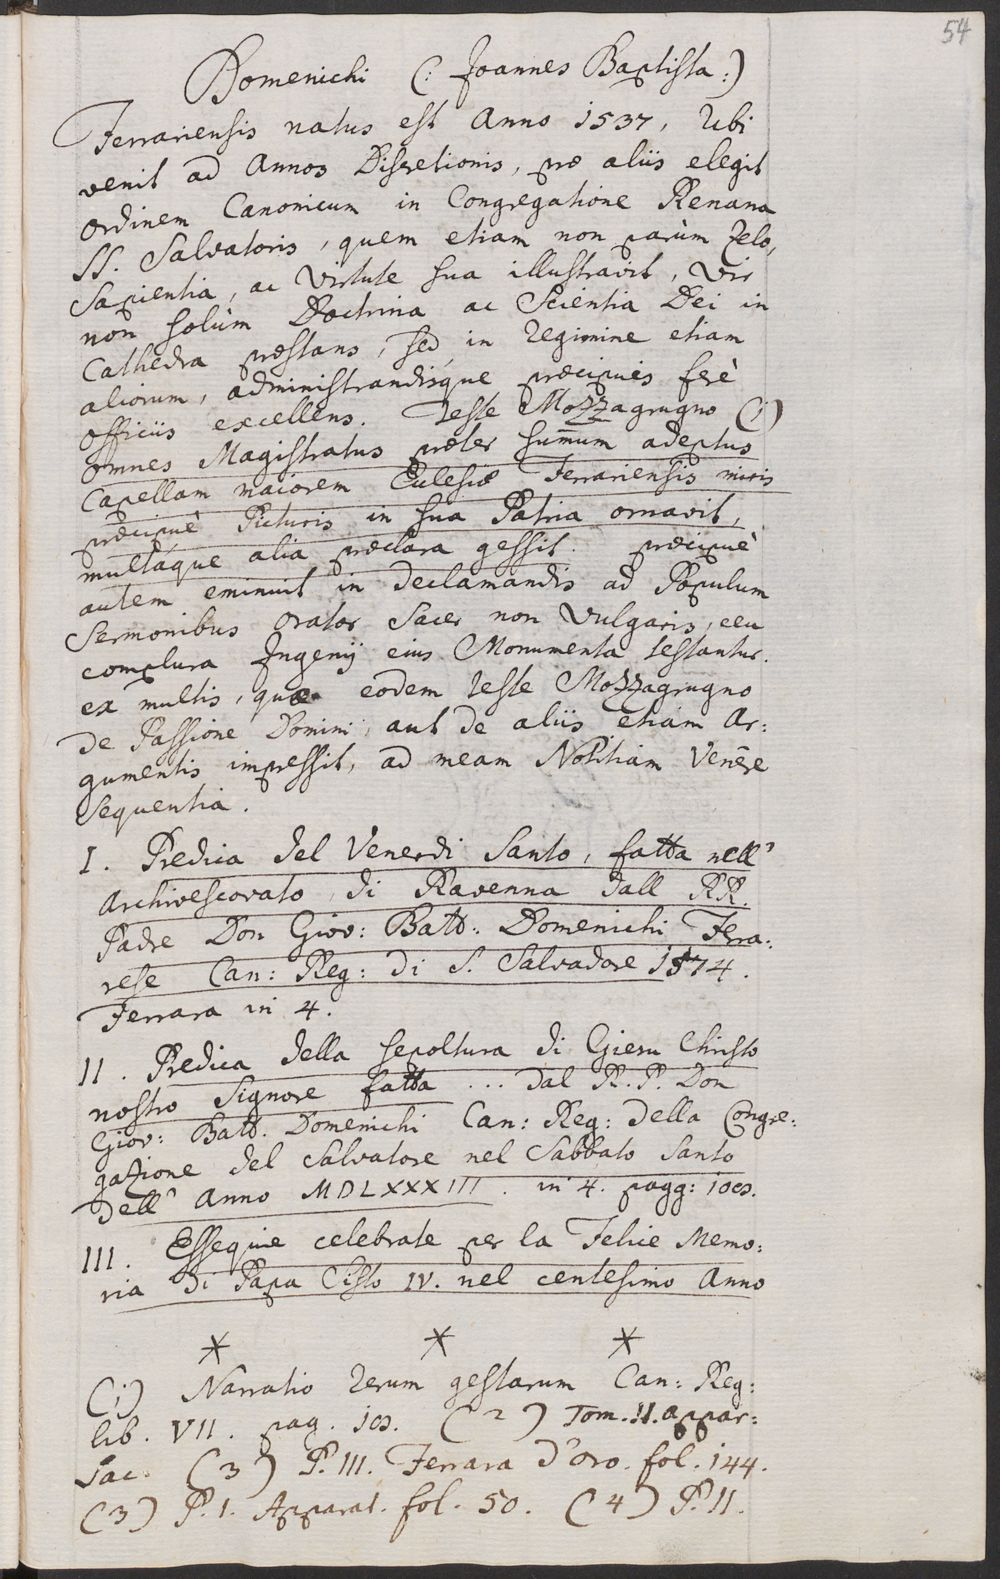 54
Domenichi (: Joannes Baptista :)
Ferrariensis natus est Anno 1537, Ubi
venit ad Annos Discretionis, præ aliis elegit
Ordinem Canonicum in Congregatione Renana
SS. Salvatoris, quem etiam non parùm Zelo,
Sapientia, ac Virtute sua illustravit, Vir
non solùm Doctrina ac Scientia Dei in
Cathedra præstans, sed in regimine etiam
aliorum, administrandisque præcipuis ferè
officiis excellens. Teste Mozzagrugno (1)
omnes Magistratus præter summum adeptus
Capellam maiorem Eclesiæ Ferrariensis miris
præcipuè Picturis in sua Patria ornavit,
multáque alia præclara gessit. præcipuè
autem eminuit in declamandis ad Populum
Sermonibus Orator Sacer non Vulgaris, ceu
complura Ingenij eius Monumenta testantur.
ex multis, quæ eodem teste Mozzagrugno
de Passione Domini, aut de aliis etiam Ar:
gumentis impressit, ad meam Notitiam Venêre
sequentia.
I. Predica del Venerdi Santo, fatta nell'
Archivescovato di Ravenna dall RR.
Padre Don Giov: Batt: Domenichi Ferra:
rese Can: Reg: di S. Salvadore 1574.
Ferrara in 4.
II. Predica della sepoltura di Giesu Christo
nostro Signore fatta ... dal R. P. Don
Giov: Batt. Domenichi Can: Reg: della Congre:
gazione del Salvatore nel Sabbato Santo
dell' Anno MDLXXXIII. in 4. pagg: 103.
III. Essequie celebrate per la Felice Memo:
ria di Papa Sisto IV. nel centesimo Anno
* * *
(1) Narratio rerum gestarum Can: Reg:
lib. VII. pag. 103. (2) Tom. II. appar:
Sac. (3) P. III. Ferrara d'oro. fol. 144.
(3) P. I. Apparat. fol. 50. (4) P. II.